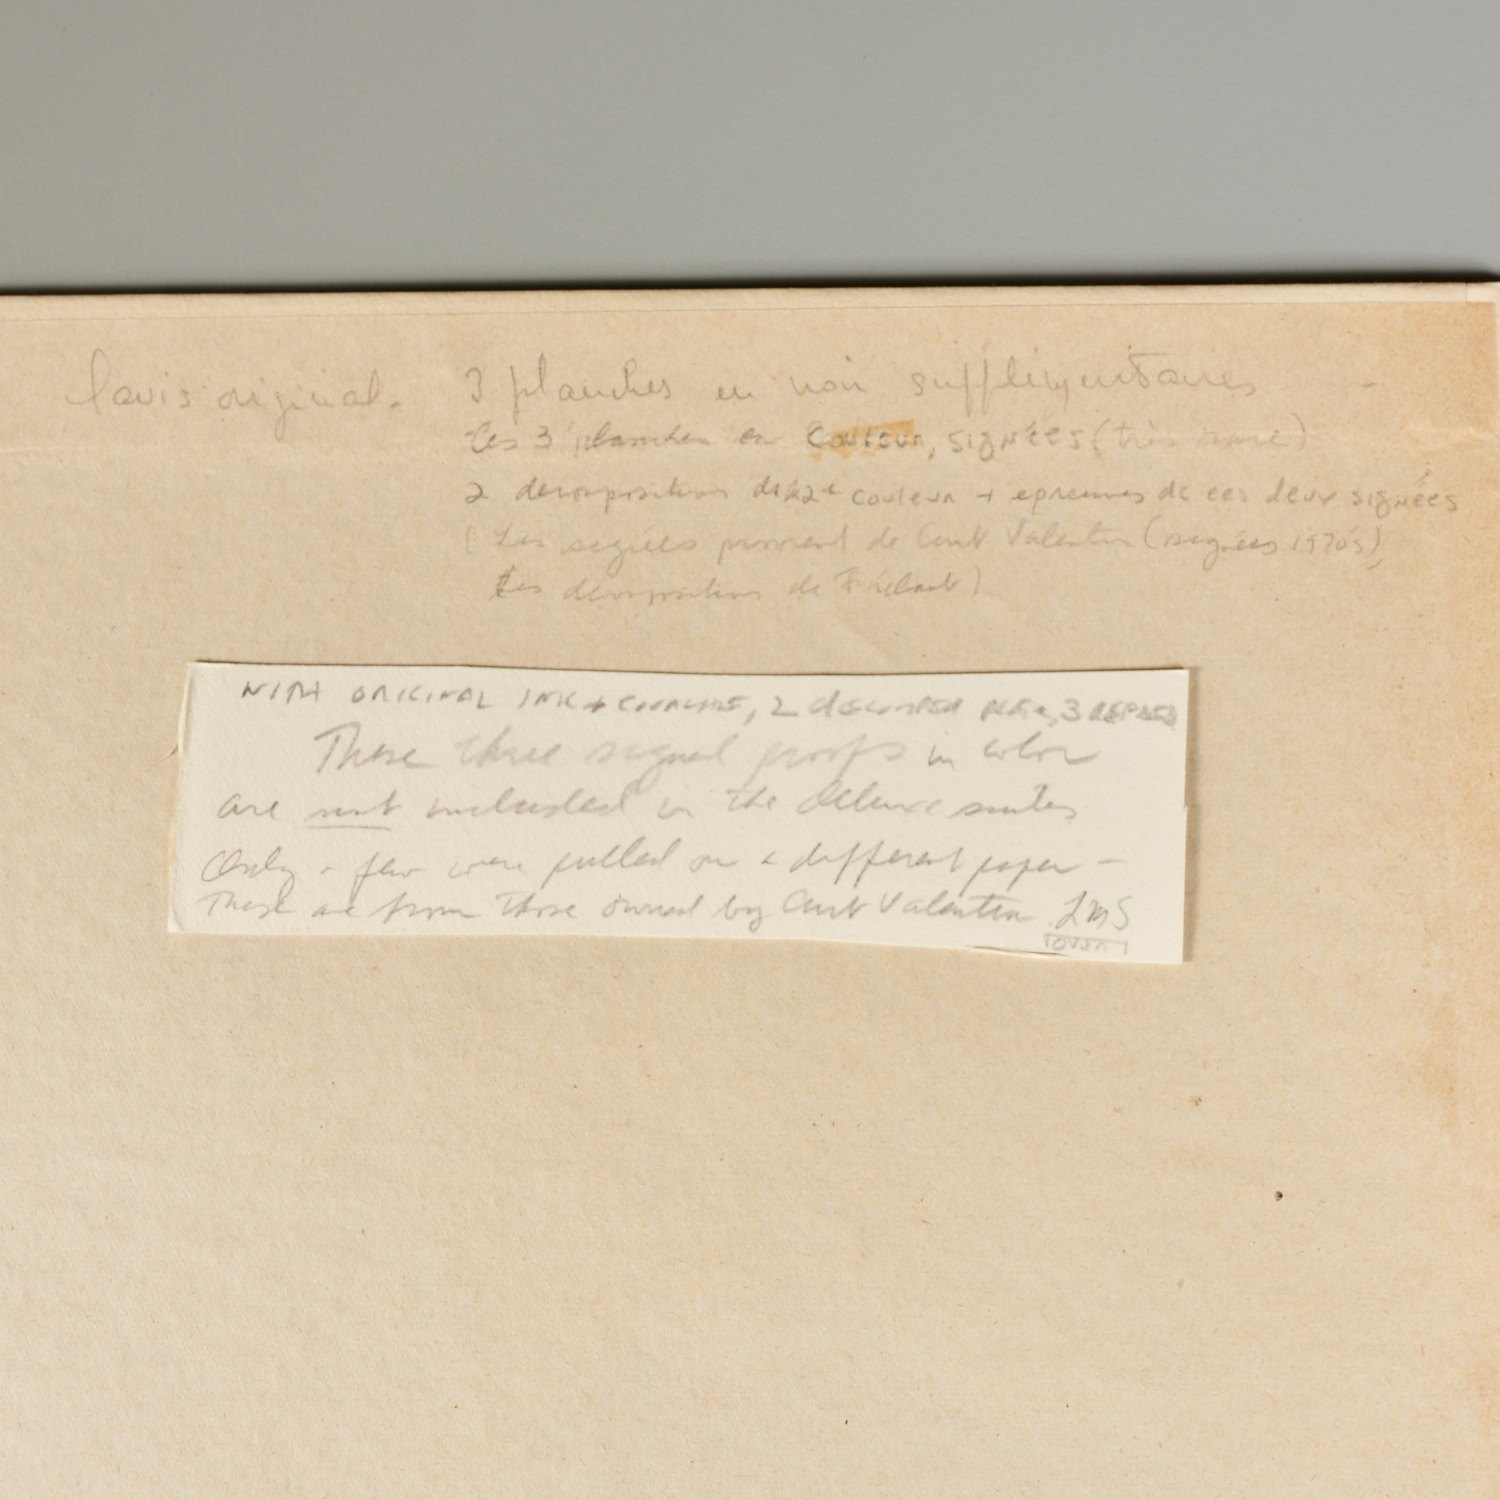 lavis original. 3 planches en noir supplémentaires -
les 3 planches en couleur, signées (très rare)
2 décompositions de couleur + épreuves de ces deux signées
(Les signées provient de Curt Valentin (signées 1970's),
les décompositions de Frélaut)
WITH ORIGINAL INK + 2 3
These three signed proofs in color
are not included in the deluxe suites
Only a few were pulled on a different paper -
These are from those owned by Curt Valentin LMS